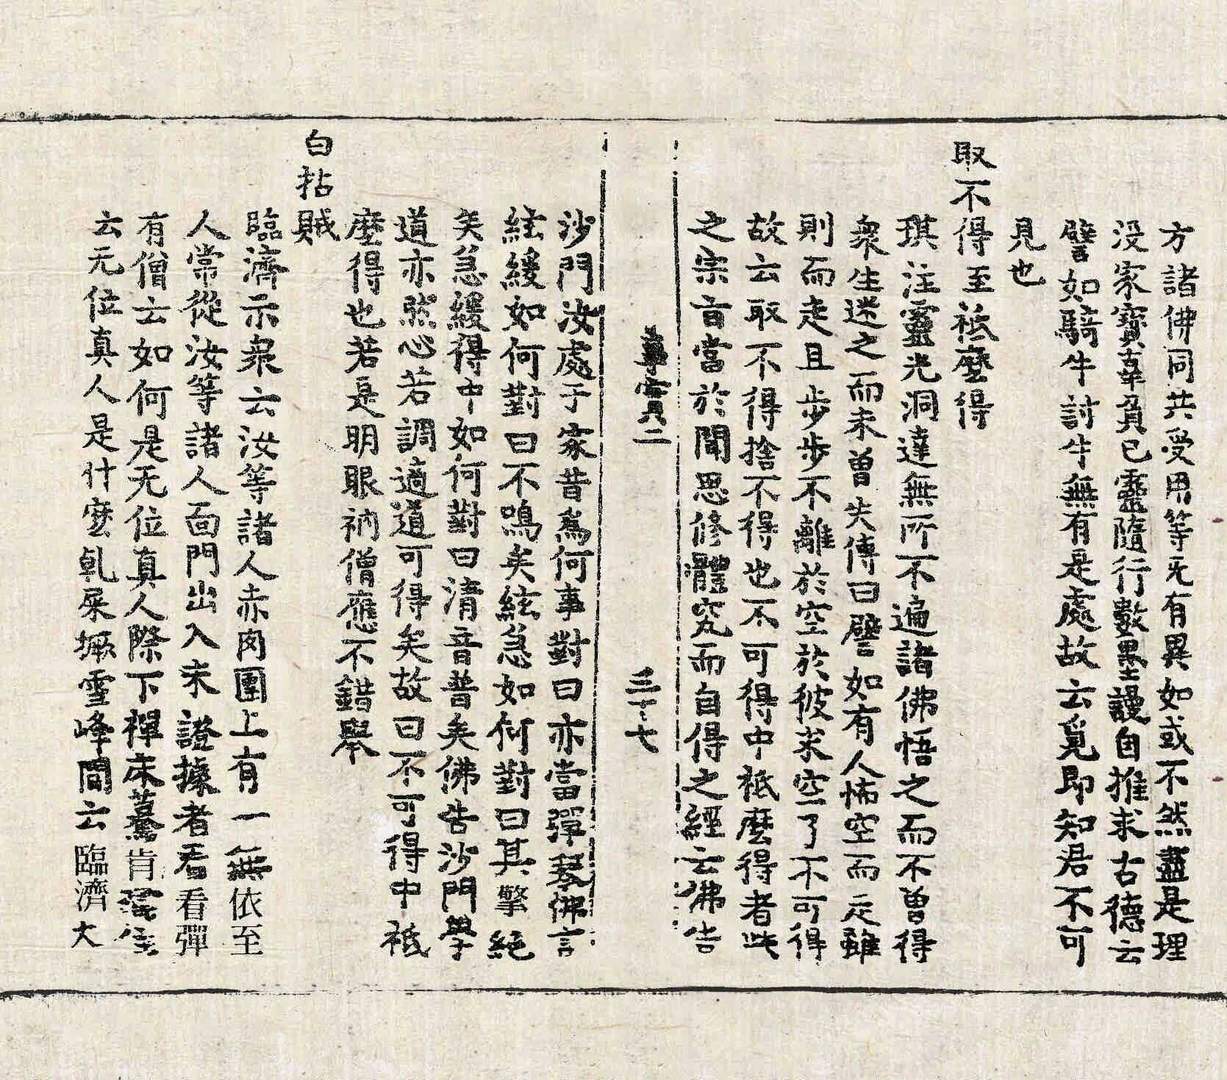 方諸佛同共受用等无有異如或不然盡是埋
没家寶辜負已靈隨行數墨謾自推求古德云
譬如騎牛討牛無有是處故云覓即知君不可
見也
取不得至祇麼得
琪注靈光洞達無所不遍諸佛悟之而不曾得
衆生迷之而未曾失傳曰譬如有人怖空而走雖
則而走且步步不離於空於彼求空了不可得
故云取不得捨不得也不可得中祇麼得者此
之宗盲當於聞思修體究而自得之經云佛告
事實二 三十七
沙門汝處于家昔爲何事對曰亦當彈琴佛言
絃緩如何對曰不鳴矣絃急如何對曰其擎絕
矣急緩得中如何對曰清音普矣佛告沙門學
道亦然心若調適道可得矣故曰不可得中祇
麼得也若是明眼衲僧應不錯舉
白拈賊
臨濟示衆云汝等諸人赤肉團上有一無依至
人常從汝等諸人面門出入未證據者看看彈
有僧云如何是无位真人際下禪床驀肯
云无位真人是什麼乹屎撅雪峰聞云臨濟大